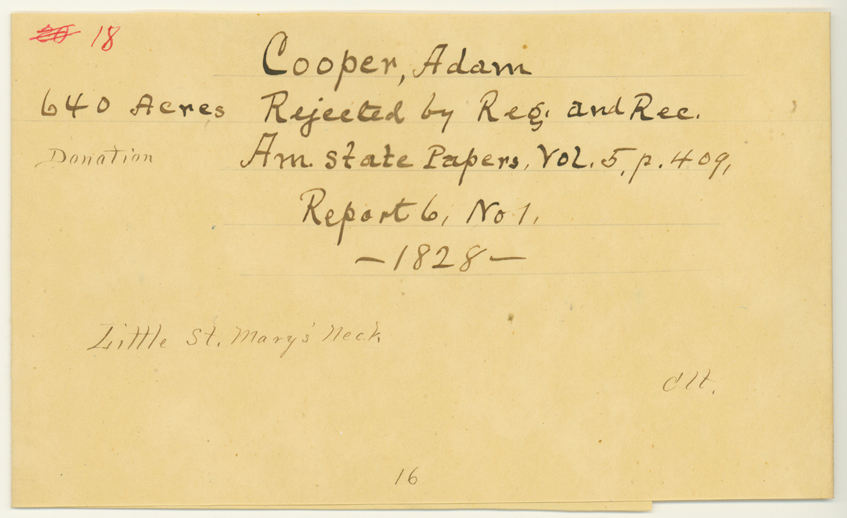 18
Cooper, Adam
640 Acres Rejected by Reg. and Rec.
Donation Am. State Papers, Vol. 5, p. 409,
Report 6, No 1,
—1828—
Little St. Mary's Neck
16